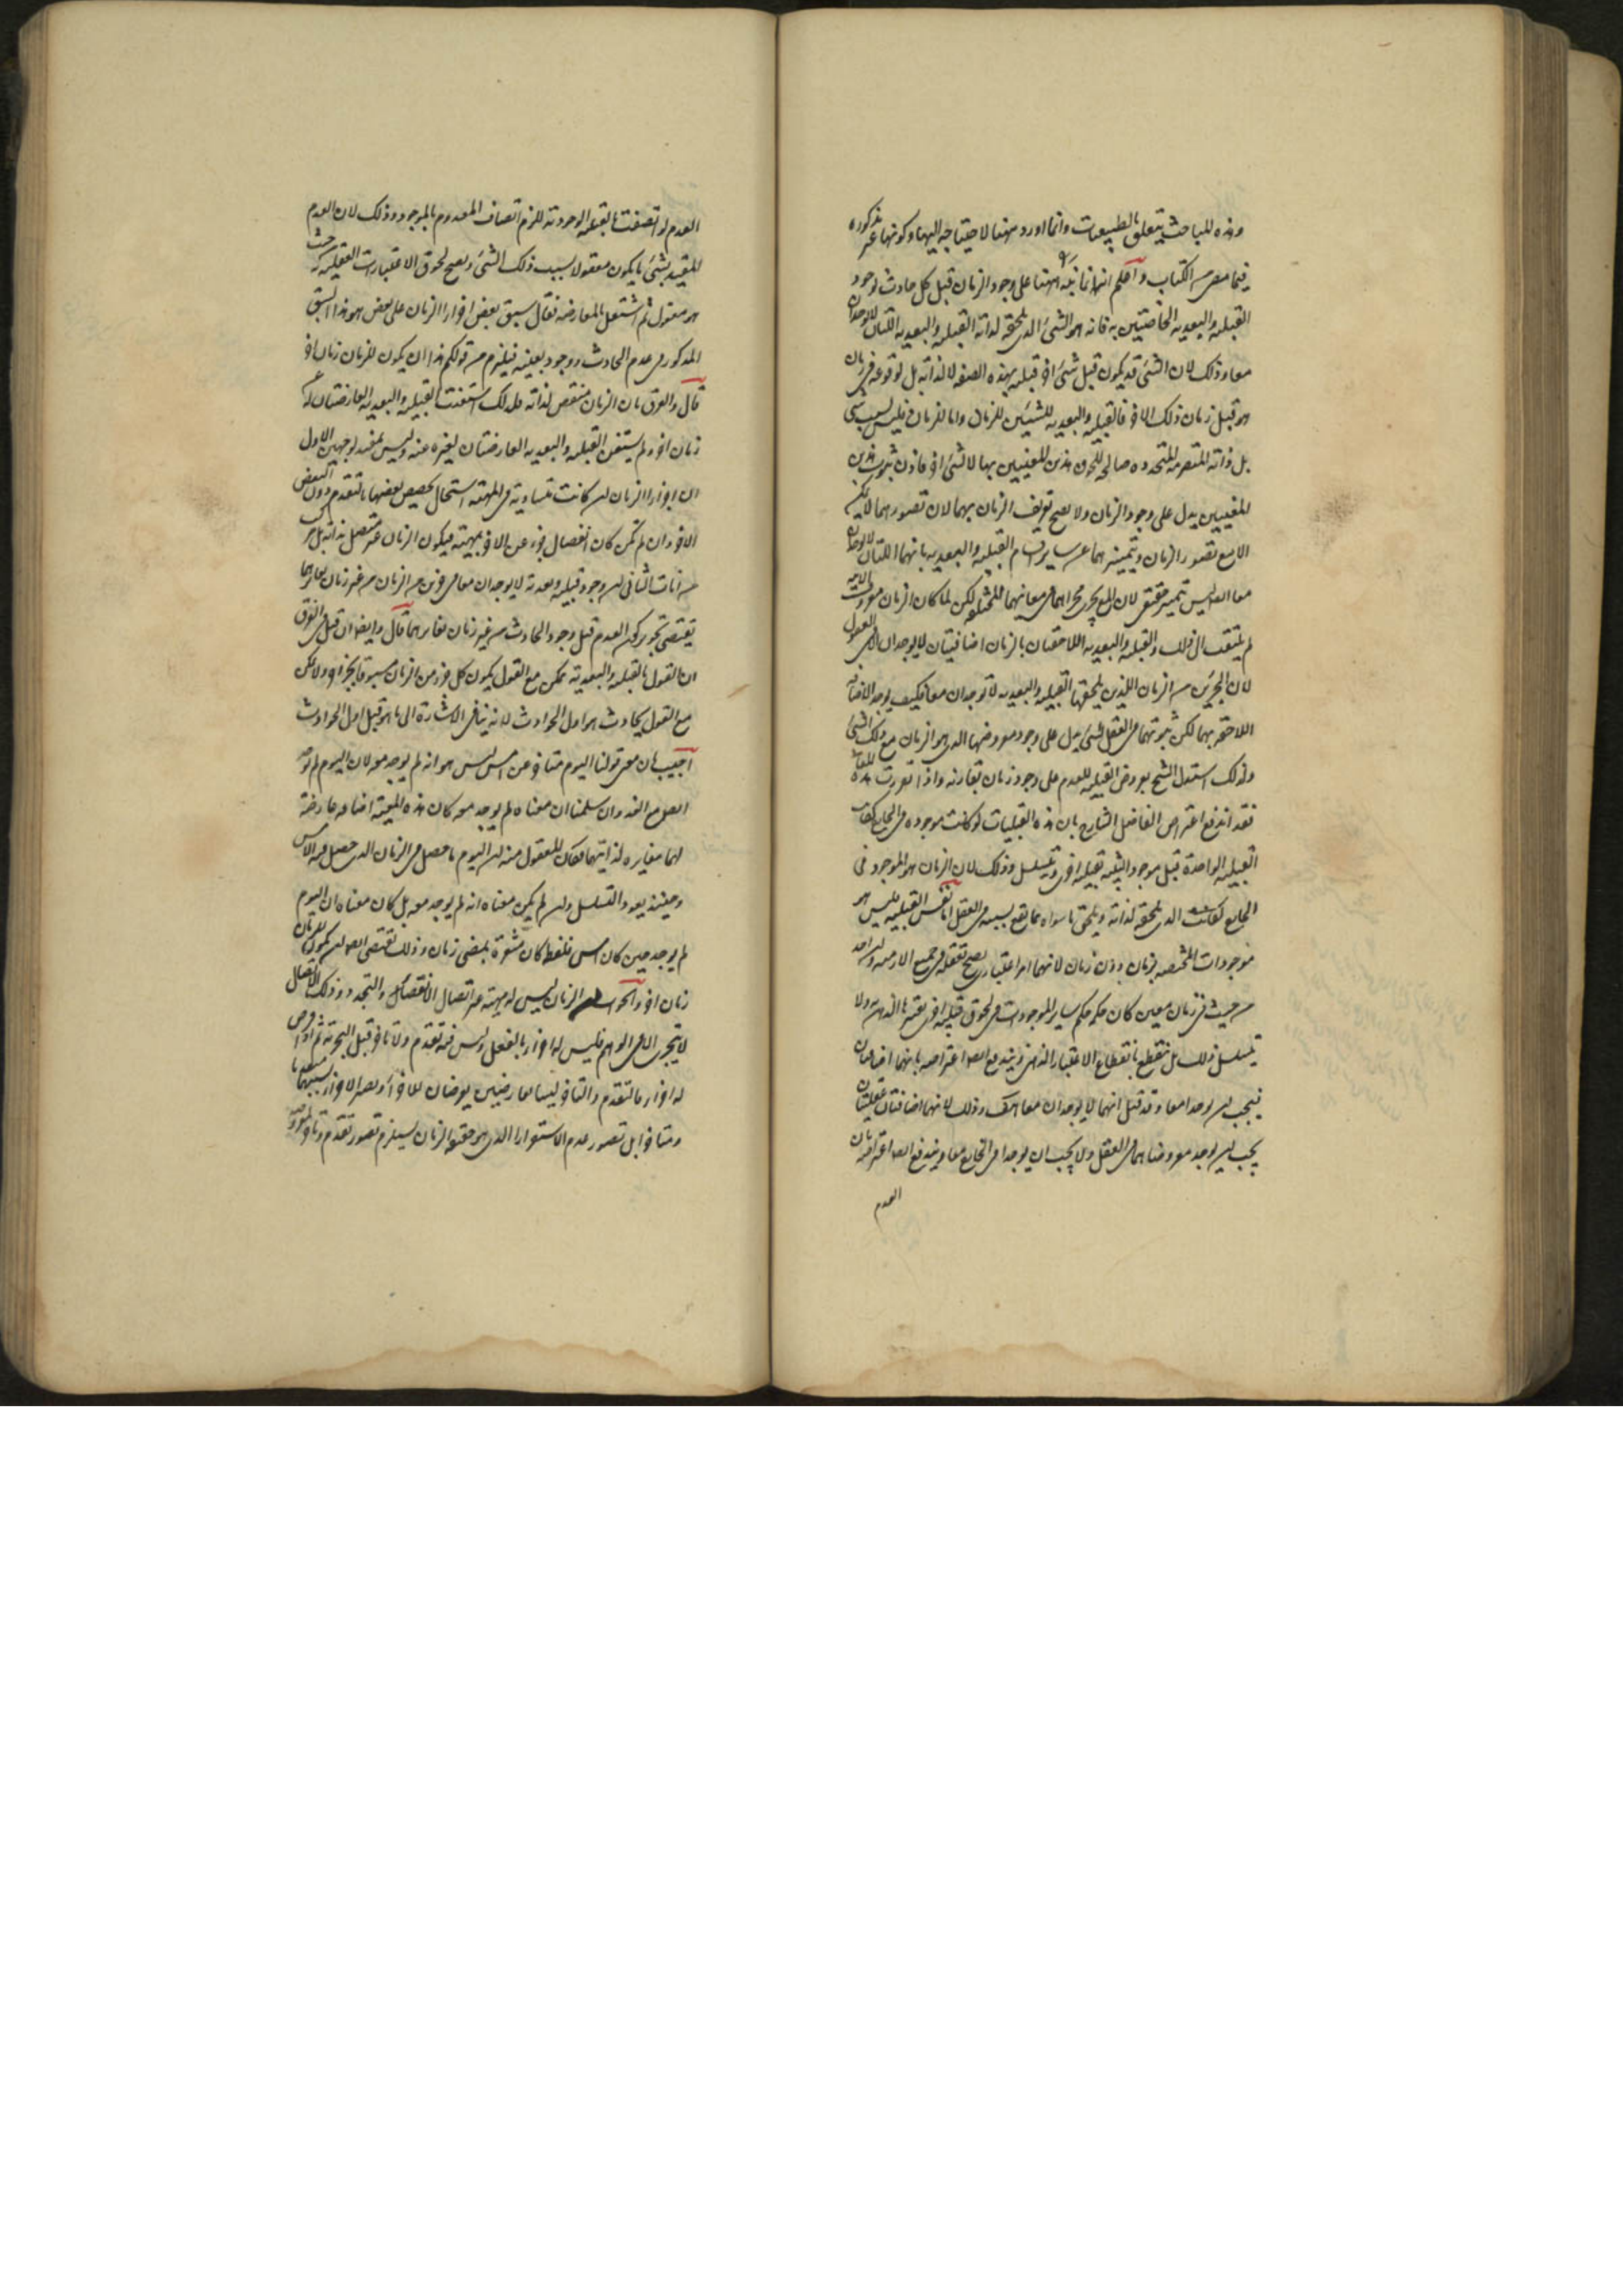 وهذه المباحث يتعلق بالطبيعيات وانما اورد ههنا لاحتياجه اليها وكونها غير مذكوره
فيما مضى من الكتاب واعلم انه انما نبه ههنا على وجود الزمان قبل كل حادث لوجود
القبليه والبعديه الخاصتين به فانه هو الشئ الذى يلحقه لذاته القبليه والبعديه اللتان لا يوجدان
معا وذلك لان الشئ قد يكون قبل شئ اخر قبليه بهذه الصفه لا لذاته بل لوقوعه فى زمان
هو قبل زمان ذلك الاخر فالقبليه والبعديه للشيئين للزمان واما للزمان فليس بسبب شئ
بل ذاته المتصرمه المتجدده صالحه للحوق هذين المعنيين بها لا لشئ اخر فاذن ثبوت هذين
المعنيين يدل على وجود الزمان ولا يصح تعريف الزمان بهما لان تصورهما لا يمكن
الا مع تصور الزمان وتمييزهما عن ساير اقسام القبليه والبعديه بانهما اللتان لا يوجدان
معا ايضا ليس تمييز حقيقى لان المع يجرى مجراهما فى معانيهما المختلفه لكن لما كان الزمان معروف الانيه
لم يلتفت الى ذلك والقبليه والبعديه اللاحقتان بالزمان اضافيتان لا يوجدان الا فى العقول
لان الجزئين من الزمان اللذين يلحقهما القبليه والبعديه لا توجدان معا فكيف يوجد الاضافه
اللاحقه بهما لكن ثبوتهما فى العقل لشئ يدل على وجود معروضهما الذى هو الزمان مع ذلك الشئ
ولذلك استدل الشيخ بعروض القبليه للعدم على وجود زمان تقارنه واذا تقررت هذه المعانى
فقد اندفع اعتراض الفاضل الشارح بان هذه القبليات لو كانت موجوده فى الخارج لكانت
القبليه الواحدة قبل موجود اخر بقبليه اخرى ويتسلسل وذلك لان الزمان هو الموجود فى
الخارج الذى يلحقه لذاته ويلحق ما سواه مما تقع بسببه فى العقل اما نفس القبليه فليس هو
موجودات المختصه بزمان دون زمان لانها امر اعتبارى يصح تعقله فى جميع الازمنه وان اخذ
من حيث فى زمان معين كان حكمه حكم ساير الموجودات فى لحوق قبليه اخرى به الذهن ولا
يتسلسل ذلك بل ينقطع بانقطاع الاعتبار الذهنى ويندفع ايضا اعتراضه بانهما اضافتان
فيجب ان يوجدا معا وقد قيل انهما لا يوجدان معا وذلك لانهما اضافتان عقليتان
يجب ان يوجد معروضاهما فى العقل ولا يجب ان يوجدا فى الخارج معا ويندفع ايضا اعتراضه بان
العدم
العدم لو اتصفت بالقبليه الوجوديه للزم اتصاف المعدوم بالموجود وذلك لان العدم
المقيد بشئ ما يكون معقولا بسبب ذلك الشئ ويصح لحوق الاعتبارات العقليه به من حيث
هو معقول ثم اشتغل بالمعارضه فقال سبق بعض اجزاء الزمان على بعض هو هذا السبق
المذكور فى عدم الحادث ووجوده بعينه فيلزم من قولكم هذا ان يكون للزمان زمان اخر
قال والفرق بان الزمان منقض لذاته فلذلك استغنت القبليه والبعديه العارضتان له عن
زمان اخر ولم يستغن القبليه والبعديه العارضتان لغيره عنه وليس بمفيد لوجهين الاول
ان اجزاء الزمان ان كانت متساوية فى المهيه استحال تخصيص بعضها بالتقدم دون البعض
الاخر وان لم تكن كان انفصال جزء عن الاخر بمهيته فيكون الزمان غير متصل بذاته بل مركب
من آنات الثانى ان وجود قبليه وبعديه لا يوجدان معا فى جزئين من الزمان من غير زمان يغايرهما
يقتضى تجويز كون العدم قبل وجود الحادث من غير زمان يغايرهما قال وايضا ان قيل فى الفرق
ان القول بالقبليه والبعديه ممكن مع القول بكون كل جزء من الزمان مسبوقا بجزء اخر ولا يمكن
مع القول بحادث هو اول الحوادث لانه ينافى الاشارة الى ما هو قبل اول الحوادث
اجيب بان معنى قولنا اليوم متاخر عن امس ليس هو انه لم يوجد معه لان اليوم لم يوجد
ايضا مع الغد وان سلمنا ان معناه لم يوجد معه كان هذه المعية اضافه عارضة
لهما مغايره لذاتيهما فكان المعقول منه ان اليوم ما حصل فى الزمان الذى حصل فيه الامس
وحينئذ يعود التسلسل وان لم يكن معناه انه لم يوجد معه بل كان معناه ان اليوم
لم يوجد حين كان امس فلفظ كان مشعرة بمضى زمان وذلك يقتضى ايضا ان يكون للزمان
زمان اخر والجواب ان الزمان ليس له مهية غير اتصال الانقضاء والتجدد وذلك الاتصال
لا يتجزى الا فى الوهم فليس له اجزاء بالفعل وليس فيه تقدم ولا تاخر قبل التجزية ثم اذا فرض
له اجزاء فالتقدم والتاخر ليسا بعارضين يعرضان للاجزاء ويصير الاجزاء بسببهما متقدما
ومتاخرا بل تصور عدم الاستقرار الذى هو حقيقه الزمان يستلزم تصور تقدم وتاخر